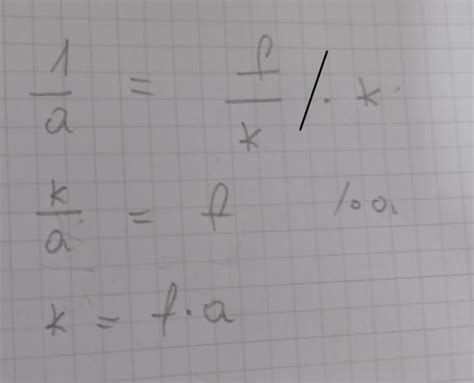 1/a = f/k /· k
k/a = f /· a
k = f · a